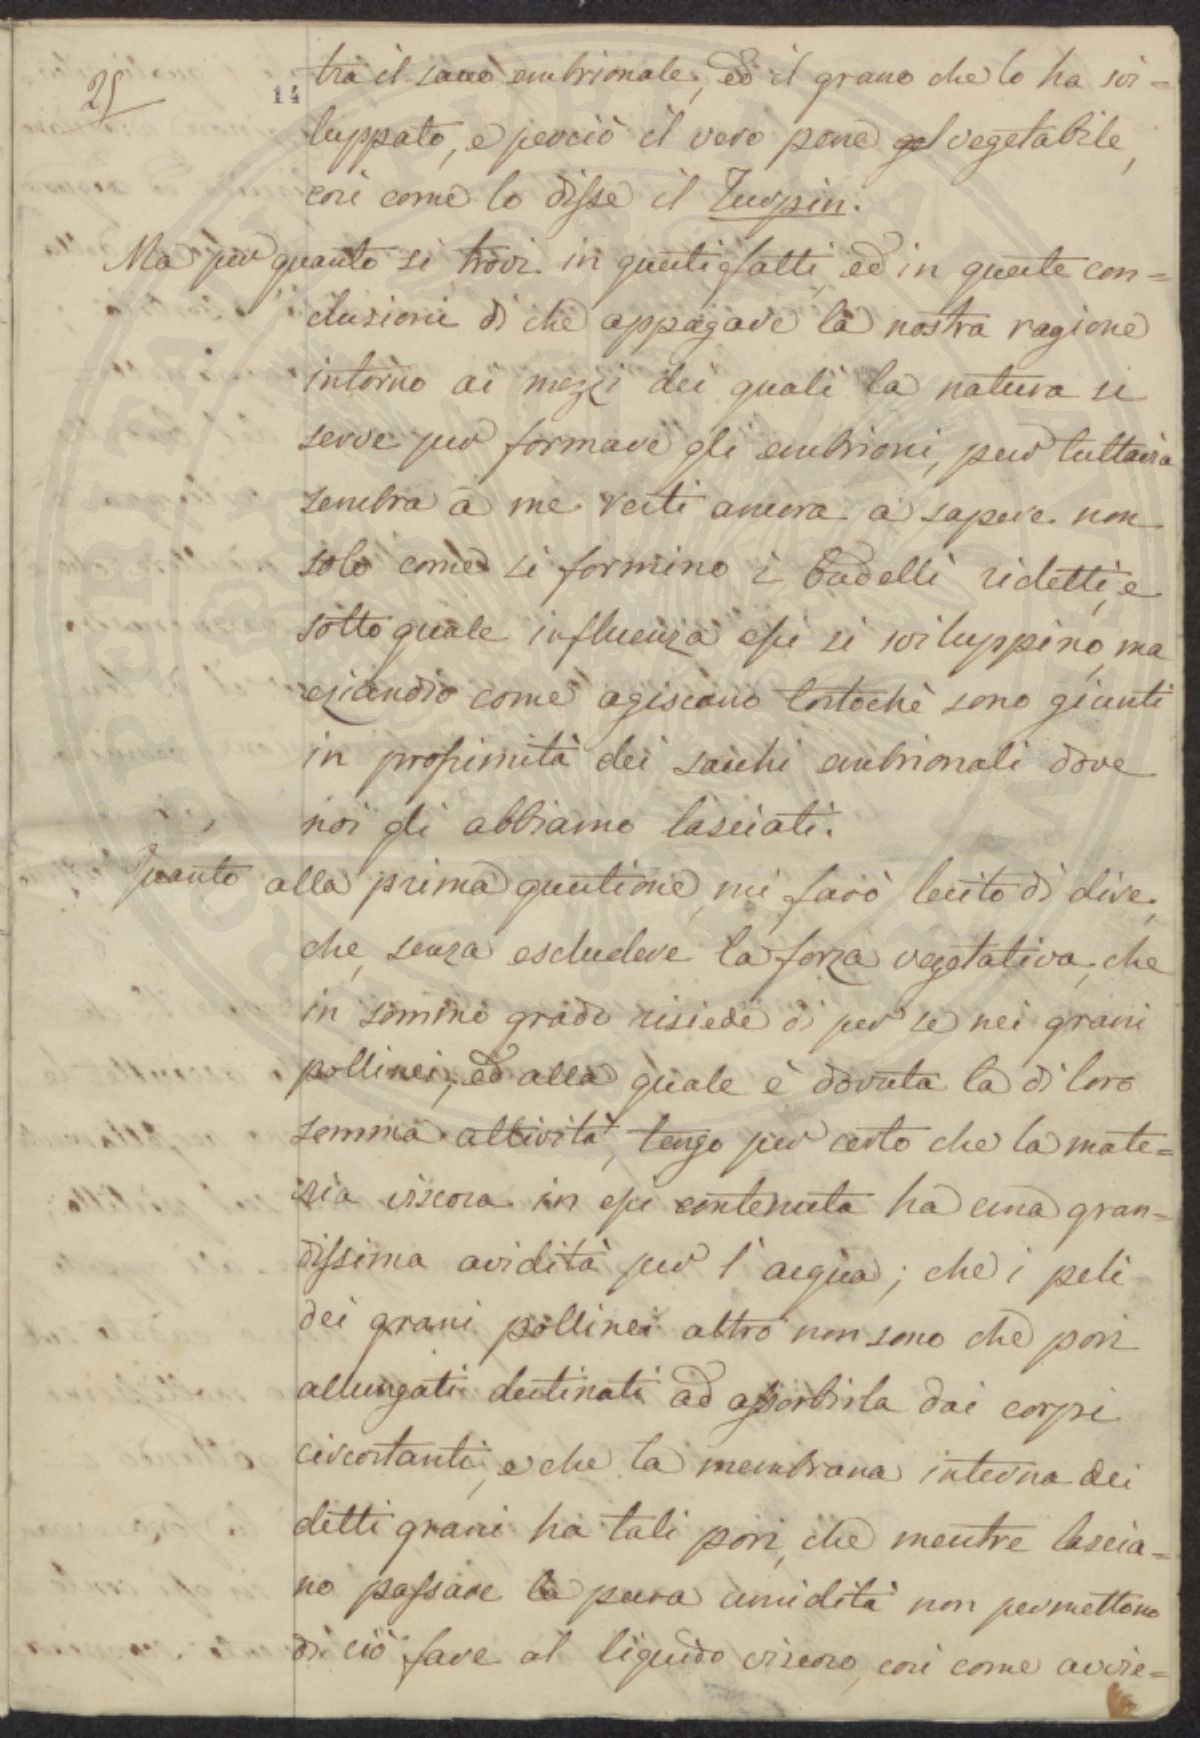 25
14
tra il sacco embrionale, ed il grano che lo ha svi=
luppato, e perciò il vero pene del vegetabile,
così come lo disse il Turpin.
Ma per quanto si trovi in questi fatti, ed in queste con=
clusioni di che appagare la nostra ragione
intorno ai mezzi dei quali la natura si
serve per formare gli embrioni, pur tuttavia
sembra a me resti ancora a sapere non
solo come si formino i budelli ridetti, e
sotto quale influenza essi si sviluppino, ma
eziandio come agiscano tostochè sono giunti
in prossimità dei sacchi embrionali dove
noi gli abbiamo lasciati.
Quanto alla prima questione, mi farò lecito di dire,
che, senza escludere la forza vegetativa, che
in sommo grado risiede di per se nei grani
pollinei, ed alla quale è dovuta la di loro
somma attività, tengo per certo che la mate=
ria viscosa in essi contenuta ha una gran=
dissima avidità per l'acqua; che i peli
dei grani pollinei altro non sono che pori
allungati destinati ad assorbirla dai corpi
circostanti, e che la membrana interna dei
detti grani ha tali pori, che mentre lascia=
no passare la pura umidità non permettono
di ciò fare al liquido viscoso, così come avvie=